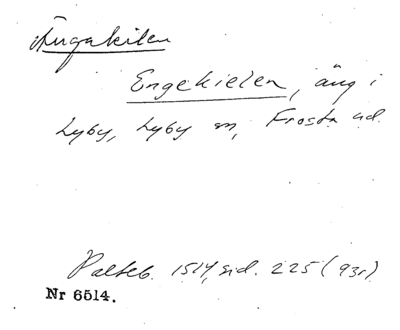 Ängakilen
Engekielen, äng i
Lyby, Lyby sn, Frosta hd.
Palteb. 1514, sid. 225 (931)
Nr 6514.